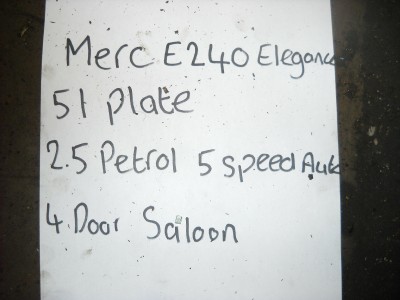 Merc E240 Elegance
51 Plate
2.5 Petrol 5 speed Auto
4 Door Saloon